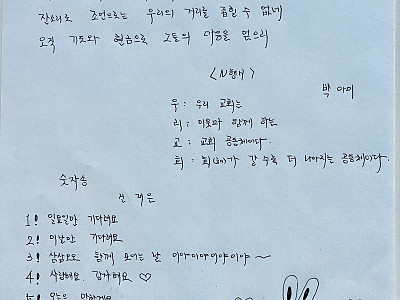 잔소리로 조언으로는 우리의 거리를 좁힐 수 없네
오직 기도와 헌금으로 그들의 이웃을 얻으리
<N행시>
박 아미
우 : 우리 교회는
리 : 이웃과 함께 하는
교 : 교회 공동체이다.
회 : 회(回)가 갈 수록 더 나아지는 공동체이다.
숫자송
신 계은
1! 일요일만 기다려요
2! 이날만 기다려요
3! 삼삼오오 함께 모이는 날 이야이야이야이야~
4! 사랑해요 감사해요 ♡
5! 오늘은